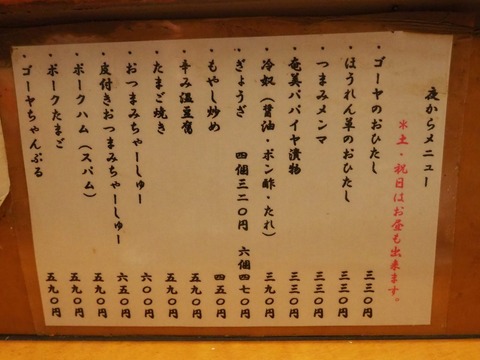 夜からメニュー
※土・祝日はお昼も出来ます。
・ゴーヤのおひたし 三三〇円
・ほうれん草のおひたし 三三〇円
・つまみメンマ 三三〇円
・奄美パパイヤ漬物 三三〇円
・冷奴(醤油・ポン酢・たれ) 三九〇円
・ぎょうざ 四個三二〇円 六個四七〇円
・もやし炒め 四五〇円
・辛み温豆腐 五九〇円
・たまご焼き 六〇〇円
・おつまみちゃーしゅー 六五〇円
・皮付きおつまみちゃーしゅー 五九〇円
・ポークハム(スパム) 五九〇円
・ポークたまご 五九〇円
・ゴーヤちゃんぷる 五九〇円